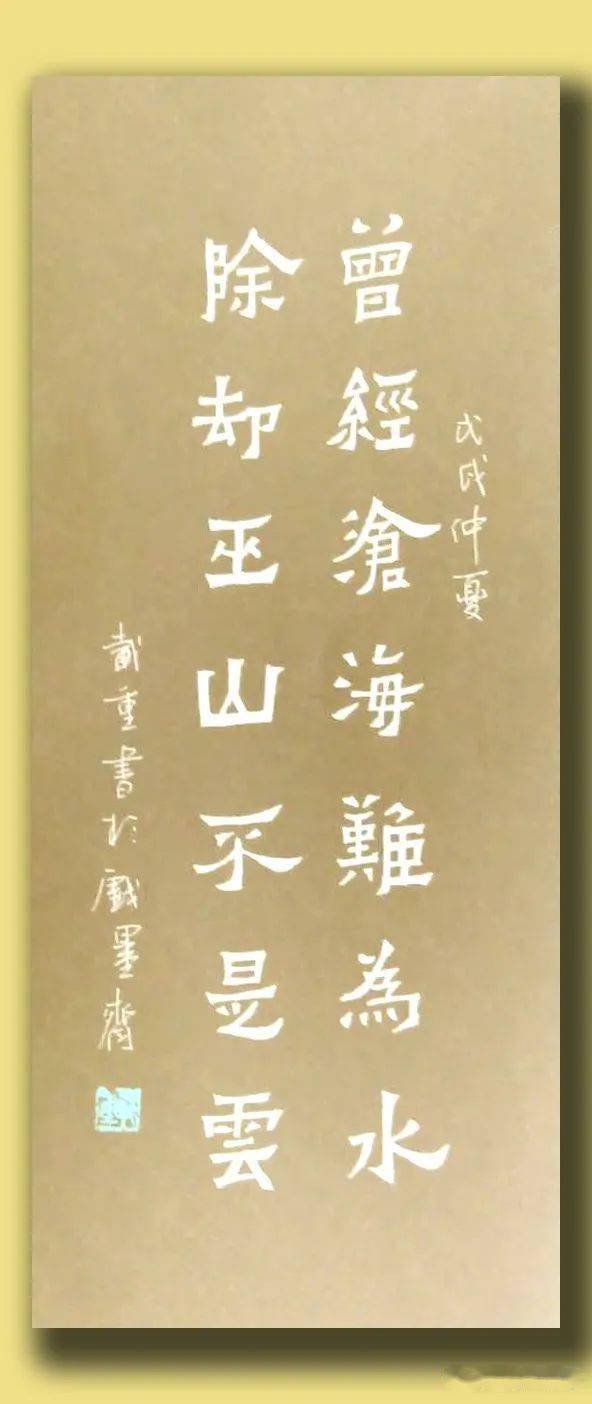 戊戌仲夏
曾經滄海難為水
除却巫山不是雲
戴重書於戲墨齋